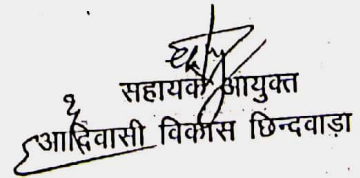 सहायक आयुक्त
आदिवासी विकास छिन्दवाड़ा